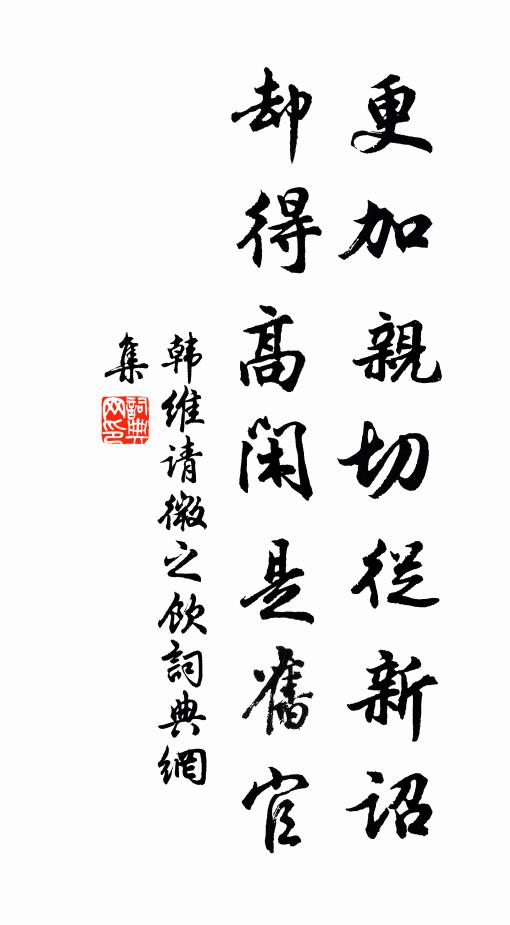 更加親切從新詔
却得高閑是舊官
韩維请微之飲詞典網
集
詞典
网印